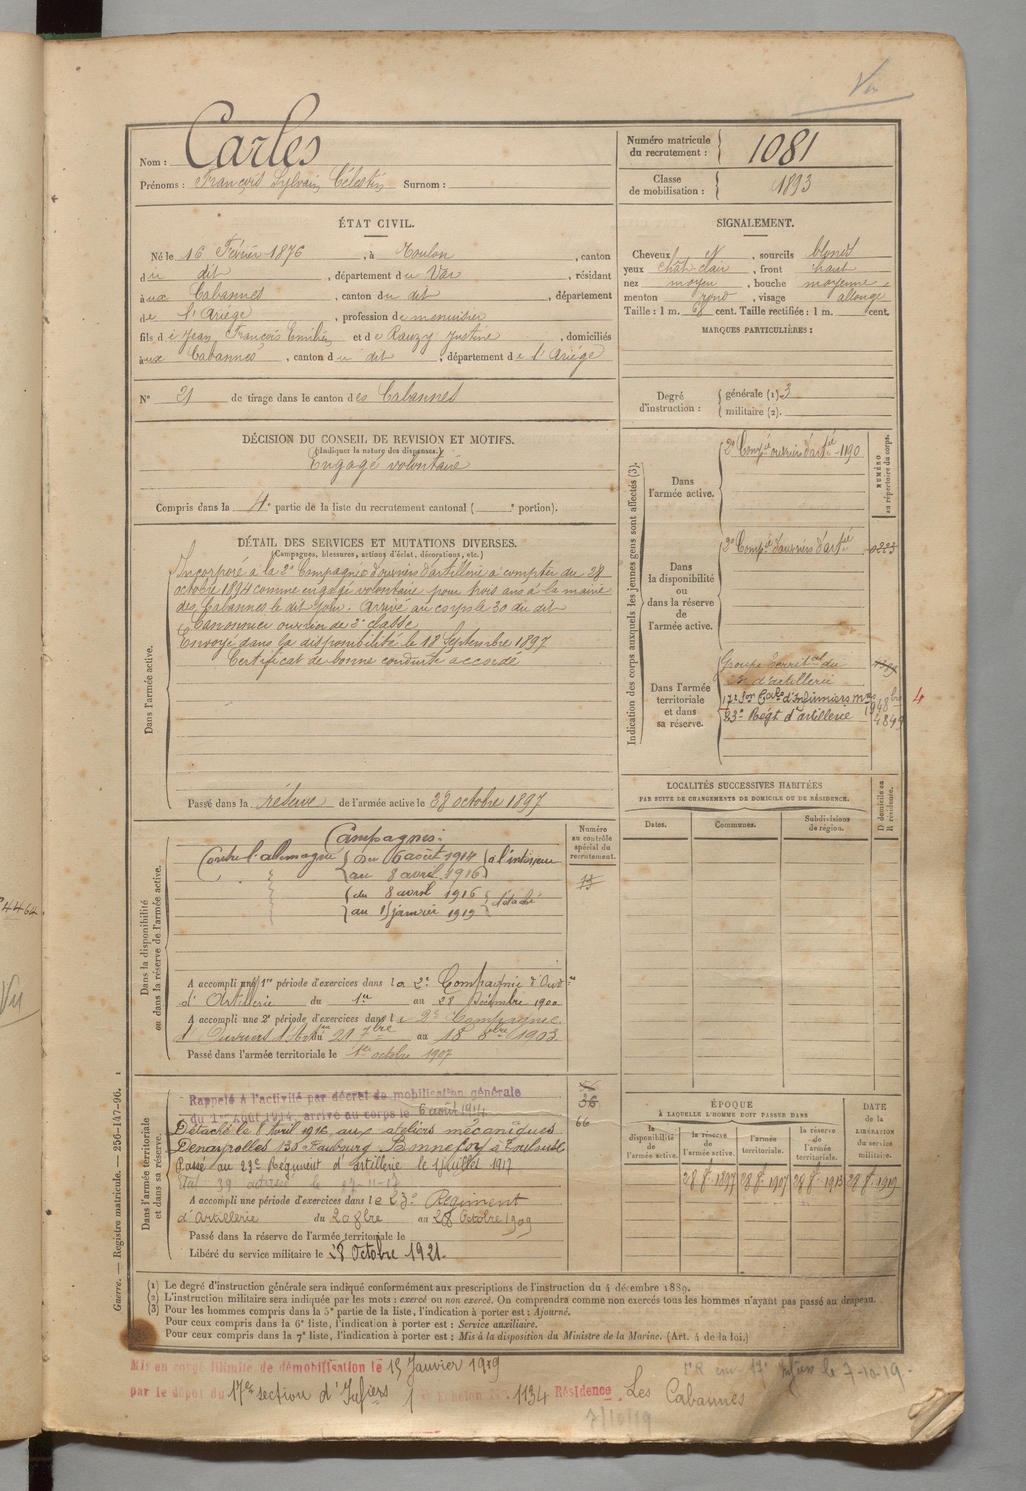 Vu
Nom : Carles
Prénoms : François Sylvain Célestin Surnom :
Numéro matricule du recrutement : 1081
Classe de mobilisation : 1893
ÉTAT CIVIL.
Né le 16 Février 1876, à Toulon, canton
du dit, département du Var, résidant
aux Cabannes, canton du dit, département
de l'Ariége, profession de menuisier
fils de Jean François Emilien et de Rauzy Justine, domiciliés
aux Cabannes, canton du dit, département de l'Ariége
N° 21 de tirage dans le canton des Cabannes
SIGNALEMENT.
Cheveux N, sourcils blonds
yeux chât. clair, front haut
nez moyen, bouche moyenne,
menton rond, visage allongé
Taille : 1 m. 68 cent. Taille rectifiée : 1 m. cent.
MARQUES PARTICULIÈRES :
Degré d'instruction : générale (1). 3
militaire (2).
DÉCISION DU CONSEIL DE REVISION ET MOTIFS.
(Indiquer la nature des dispenses.)
Engagé volontaire
Compris dans la 4e partie de la liste du recrutement cantonal ( e portion).
DÉTAIL DES SERVICES ET MUTATIONS DIVERSES.
(Campagnes, blessures, actions d'éclat, décorations, etc.)
Dans l'armée active.
Incorporé à la 2e Compagnie d'ouvriers d'artillerie à compter du 28
octobre 1894 comme engagé volontaire pour trois ans à la mairie
des Cabannes le dit jour. Arrivé au corps le 30 du dit
Canonnier ouvrier de 3e classe
Envoyé dans la disponibilité le 18 Septembre 1897
Certificat de bonne conduite accordé
Passé dans la réserve de l'armée active le 28 octobre 1897
Indication des corps auxquels les jeunes gens sont affectés (3).
NUMÉRO au répertoire du corps.
Dans l'armée active.
2e Compie ouvriers d'artie 1190
Dans la disponibilité ou dans la réserve de l'armée active.
2e Compie d'ouvriers d'artie 0223
Dans l'armée territoriale et dans sa réserve.
Groupe territal du
23e d'artillerie
17e Son Cale d'Infirmiers Mres 1948 bis 4
23e Régt d'artillerie 4849
LOCALITÉS SUCCESSIVES HABITÉES
PAR SUITE DE CHANGEMENTS DE DOMICILE OU DE RÉSIDENCE.
Dates. Communes. Subdivisions de région. D domicile ou R résidence.
Dans la disponibilité ou dans la réserve de l'armée active.
Numéro au contrôle spécial du recrutement.
13
Campagnes :
Contre l'allemagne du 6 août 1914 à l'intérieur
au 8 avril 1916
du 8 avril 1916 détaché
au 15 janvier 1919
A accompli une 1re période d'exercices dans la 2e Compagnie d'Ouvrs
d'Artillerie du 1er au 28 Décembre 1900
A accompli une 2e période d'exercices dans la 2e Compagnie
d'Ouvriers d'Artie du 21 7bre au 18 8bre 1903
Passé dans l'armée territoriale le 1er octobre 1907
Dans l'armée territoriale et dans sa réserve.
36
66
Rappelé à l'activité par décret de mobilisation générale
du 1er Août 1914, arrivé au corps le 6 août 1914
Détaché le 8 Avril 1916 aux ateliers mécaniques
Denayrolles 135 Faubourg Bonnefoy à Toulouse
Passé au 23e Régiment d'artillerie le 1 Juillet 1917
A accompli une période d'exercices dans le 23e Régiment
d'Artillerie du 20 8bre au 28 Octobre 1909
Passé dans la réserve de l'armée territoriale le
Libéré du service militaire le 28 Octobre 1921.
ÉPOQUE
À LAQUELLE L'HOMME DOIT PASSER DANS
la disponibilité de l'armée active. la réserve de l'armée active. l'armée territoriale. la réserve de l'armée territoriale.
DATE de la LIBÉRATION du service militaire.
28 8bre 1897 28 8bre 1907 28 8bre 1913 28 8bre 1919
(1) Le degré d'instruction générale sera indiqué conformément aux prescriptions de l'instruction du 4 décembre 1889.
(2) L'instruction militaire sera indiquée par les mots : exercé ou non exercé. On comprendra comme non exercés tous les hommes n'ayant pas passé au drapeau.
(3) Pour les hommes compris dans la 5e partie de la liste, l'indication à porter est : Ajourné.
Pour ceux compris dans la 6e liste, l'indication à porter est : Service auxiliaire.
Pour ceux compris dans la 7e liste, l'indication à porter est : Mis à la disposition du Ministre de la Marine. (Art. 4 de la loi.)
Guerre. — Registre matricule. — 256-147-96.
Mis en congé illimité de démobilisation le 15 Janvier 1919
par le dépôt du 17e section d'Infiers 1er Echelon N° 1134 Résidence Les Cabannes
le 7-10-19.
7/10/19
4464
Vu